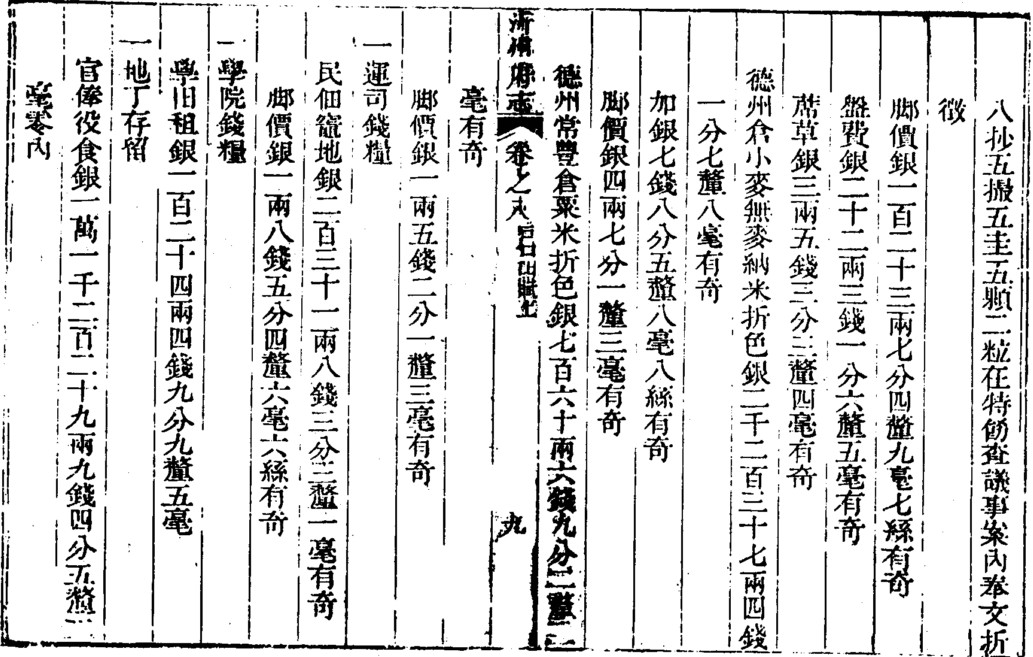 八抄五撮五圭五顆二粒在特飭查議事案內奉文折
徵
脚價銀一百二十三兩七分四釐九毫七絲有奇
盤費銀二十二兩三錢一分六釐五毫有奇
蓆草銀三兩五錢三分三釐四毫有奇
德州倉小麥無麥納米折色銀二千二百三十七兩四錢
一分七釐八毫有奇
加銀七錢八分五釐八毫八絲有奇
脚價銀四兩七分一釐三毫有奇
德州常豐倉粟米折色銀七百六十兩六錢九分二釐一
沂州府志 卷之 田賦 九
毫有奇
脚價銀一兩五錢二分一釐三毫有奇
一運司錢糧
民佃竈地銀二百三十一兩八錢三分三釐一毫有奇
脚價銀一兩八錢五分四釐六毫六絲有奇
一學院錢糧
學田租銀一百二十四兩四錢九分九釐五毫
一地丁存留
官俸役食銀一萬一千二百二十九兩九錢四分五釐
毫零內